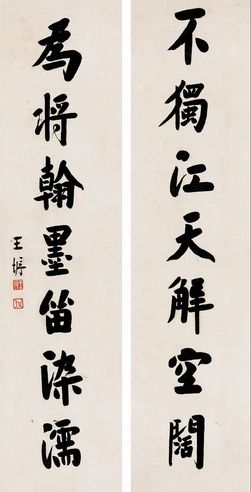 不獨江天解空闊
為將翰墨留染濡
王